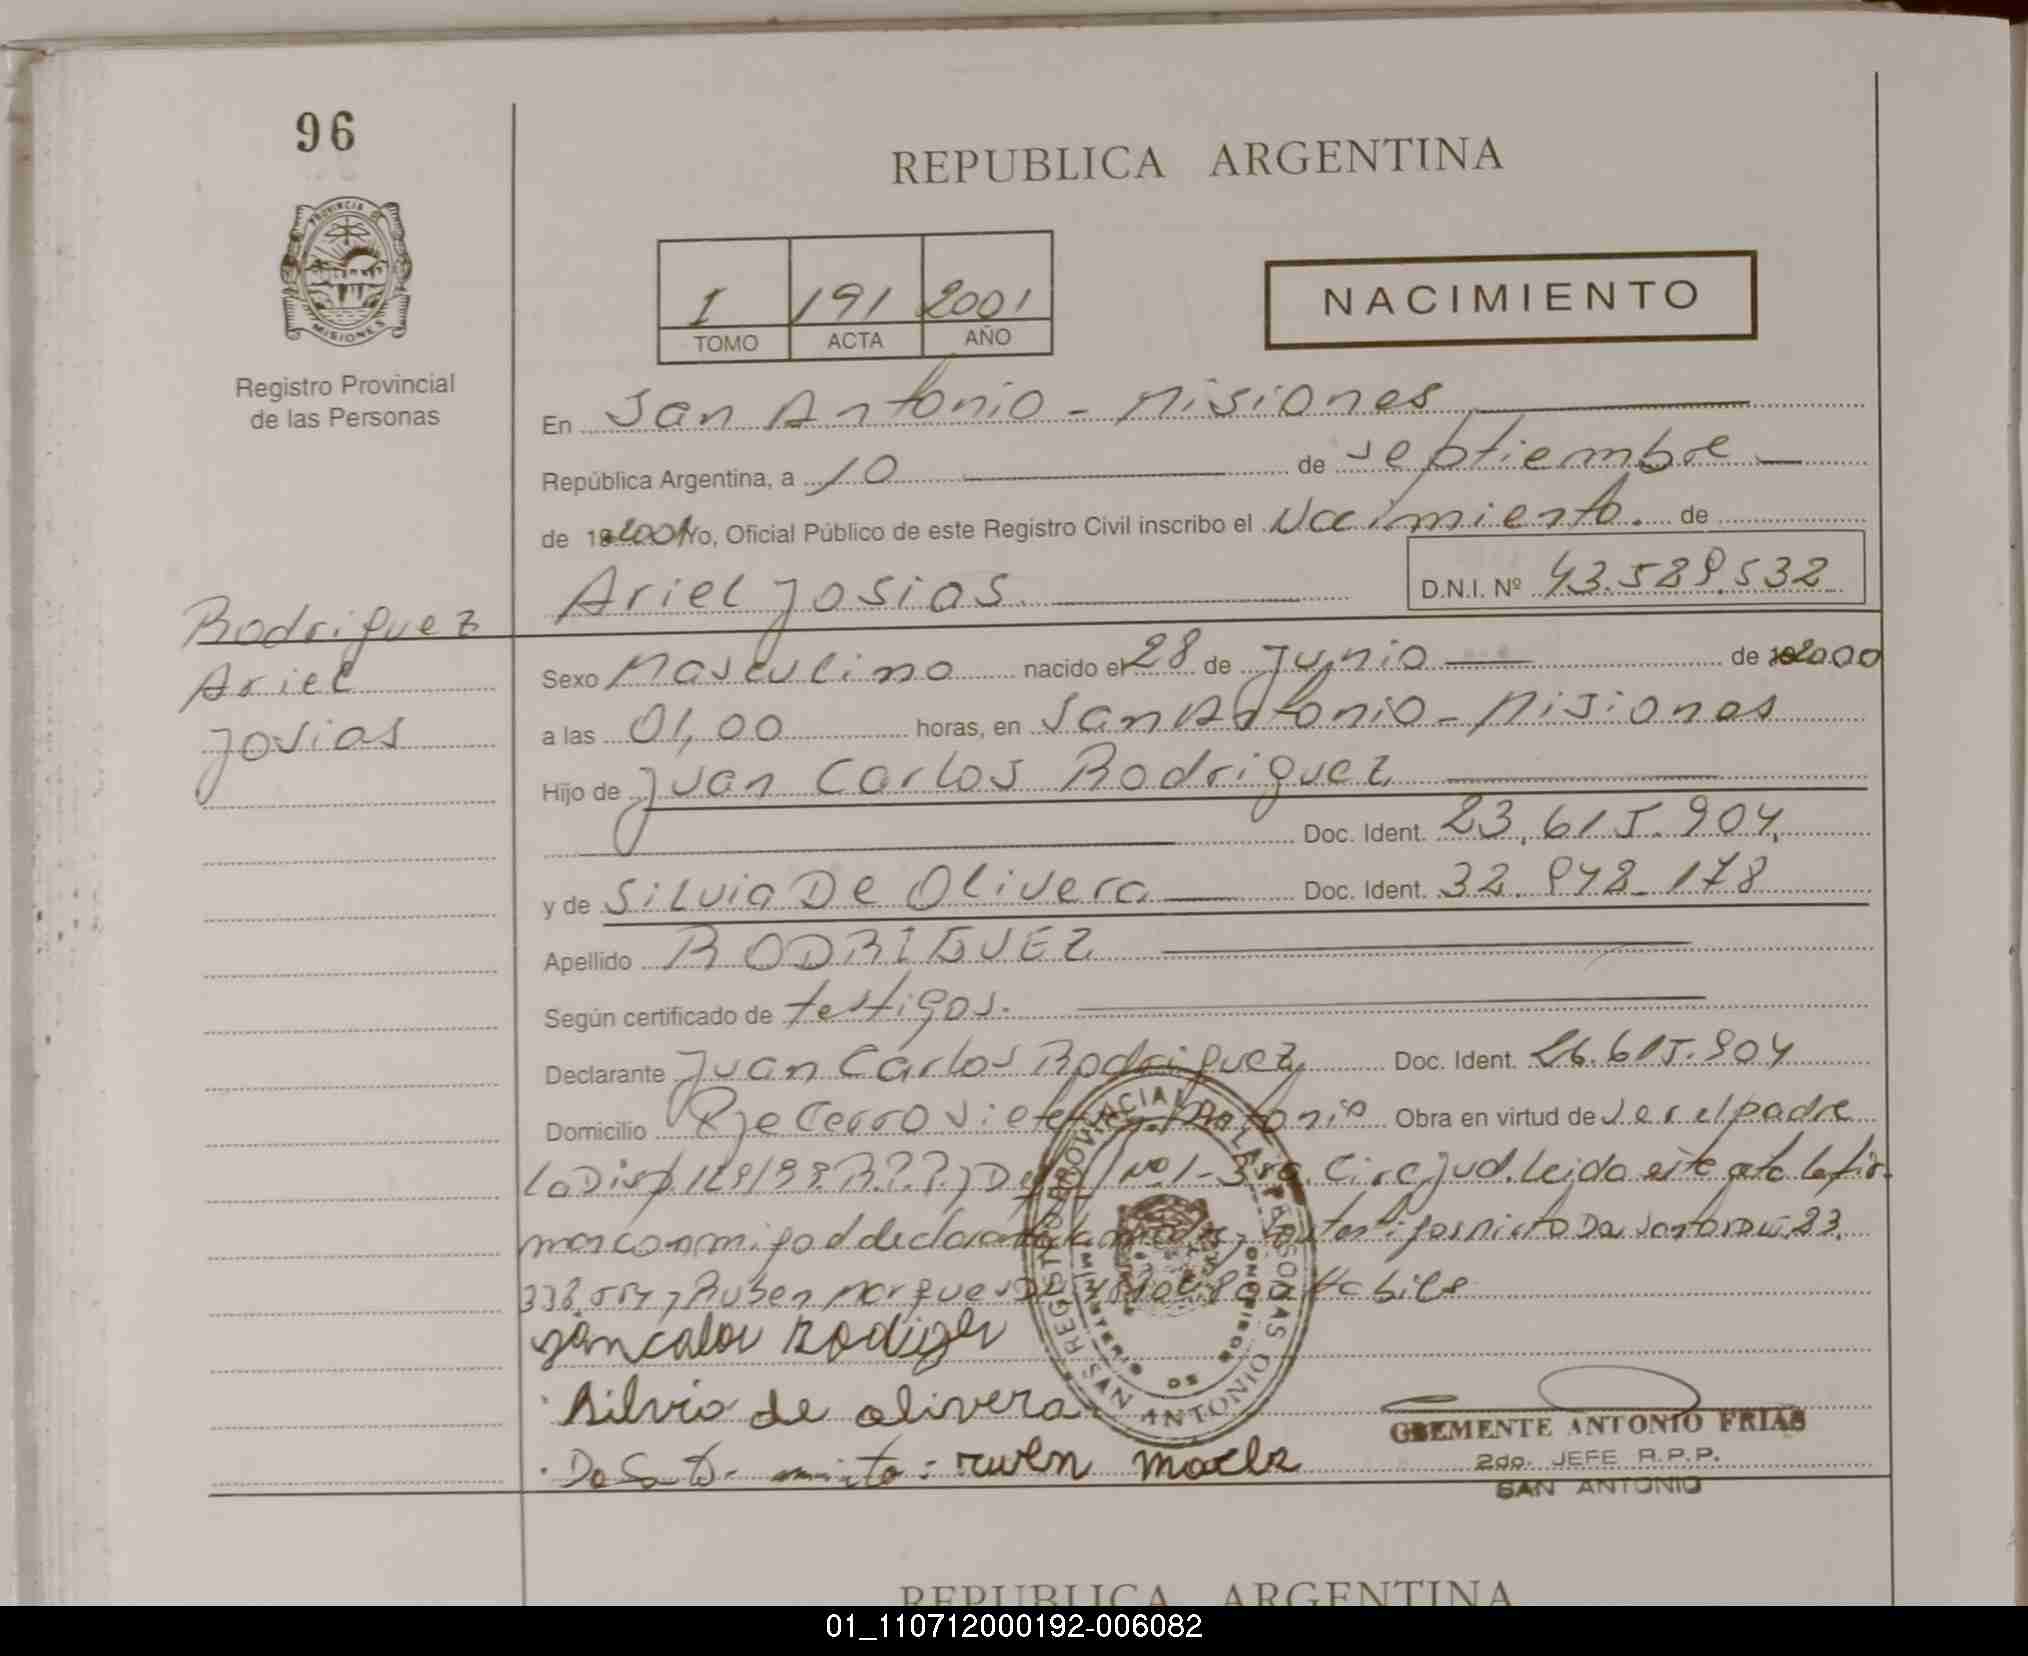 96
REPUBLICA ARGENTINA
PROVINCIA DE
MISIONES
Registro Provincial
de las Personas
I 191 2001
TOMO ACTA AÑO
NACIMIENTO
En San Antonio - Misiones
República Argentina, a 10 de septiembre
de 2001 Yo, Oficial Público de este Registro Civil inscribo el Nacimiento. de
Ariel Josias D.N.I. Nº 43.589.532
Rodriguez
Ariel
Josias
Sexo Masculino nacido el 28 de Junio de 2000
a las 01,00 horas, en San Antonio - Misiones
Hijo de Juan Carlos Rodriguez
Doc. Ident. 23.615.904
y de Silvia De Olivera Doc. Ident. 32.942.178
Apellido RODRIGUEZ
Según certificado de testigos.
Declarante Juan Carlos Rodriguez Doc. Ident. 26.615.904
Domicilio Pje Cerro Siete Antonio Obra en virtud de ser el padre
La Disp. Nº 1 - 3ra. Circ. Jud. Leida este acta la fir-
man conmigo el declarante la madre y los testigos Da
Ruben Marques Habiles
Silvia de olivera
ruven
REGISTRO PROVINCIAL DE LAS PERSONAS
SAN ANTONIO
CLEMENTE ANTONIO FRIAS
2do. JEFE R.P.P.
SAN ANTONIO
REPUBLICA ARGENTINA
01_110712000192-006082